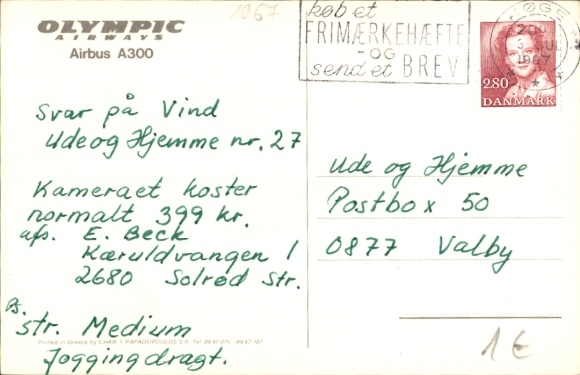 OLYMPIC
AIRWAYS
Airbus A300
1967
køb et
FRIMÆRKEHÆFTE
- OG
send et BREV
KØGE
3 JUL
1967
2.80
DANMARK
Svar på Vind
Ude og Hjemme nr. 27
Kameraet koster
normalt 399 kr.
afs. E. Beck
Karuldvangen 1
2680 Solrød Str.
Ps.
str. Medium
Joggingdragt.
Printed in Greece by CHAR. I. PAPADOPOULOS S.A.
Ude og Hjemme
Postbox 50
0877 Valby
1€